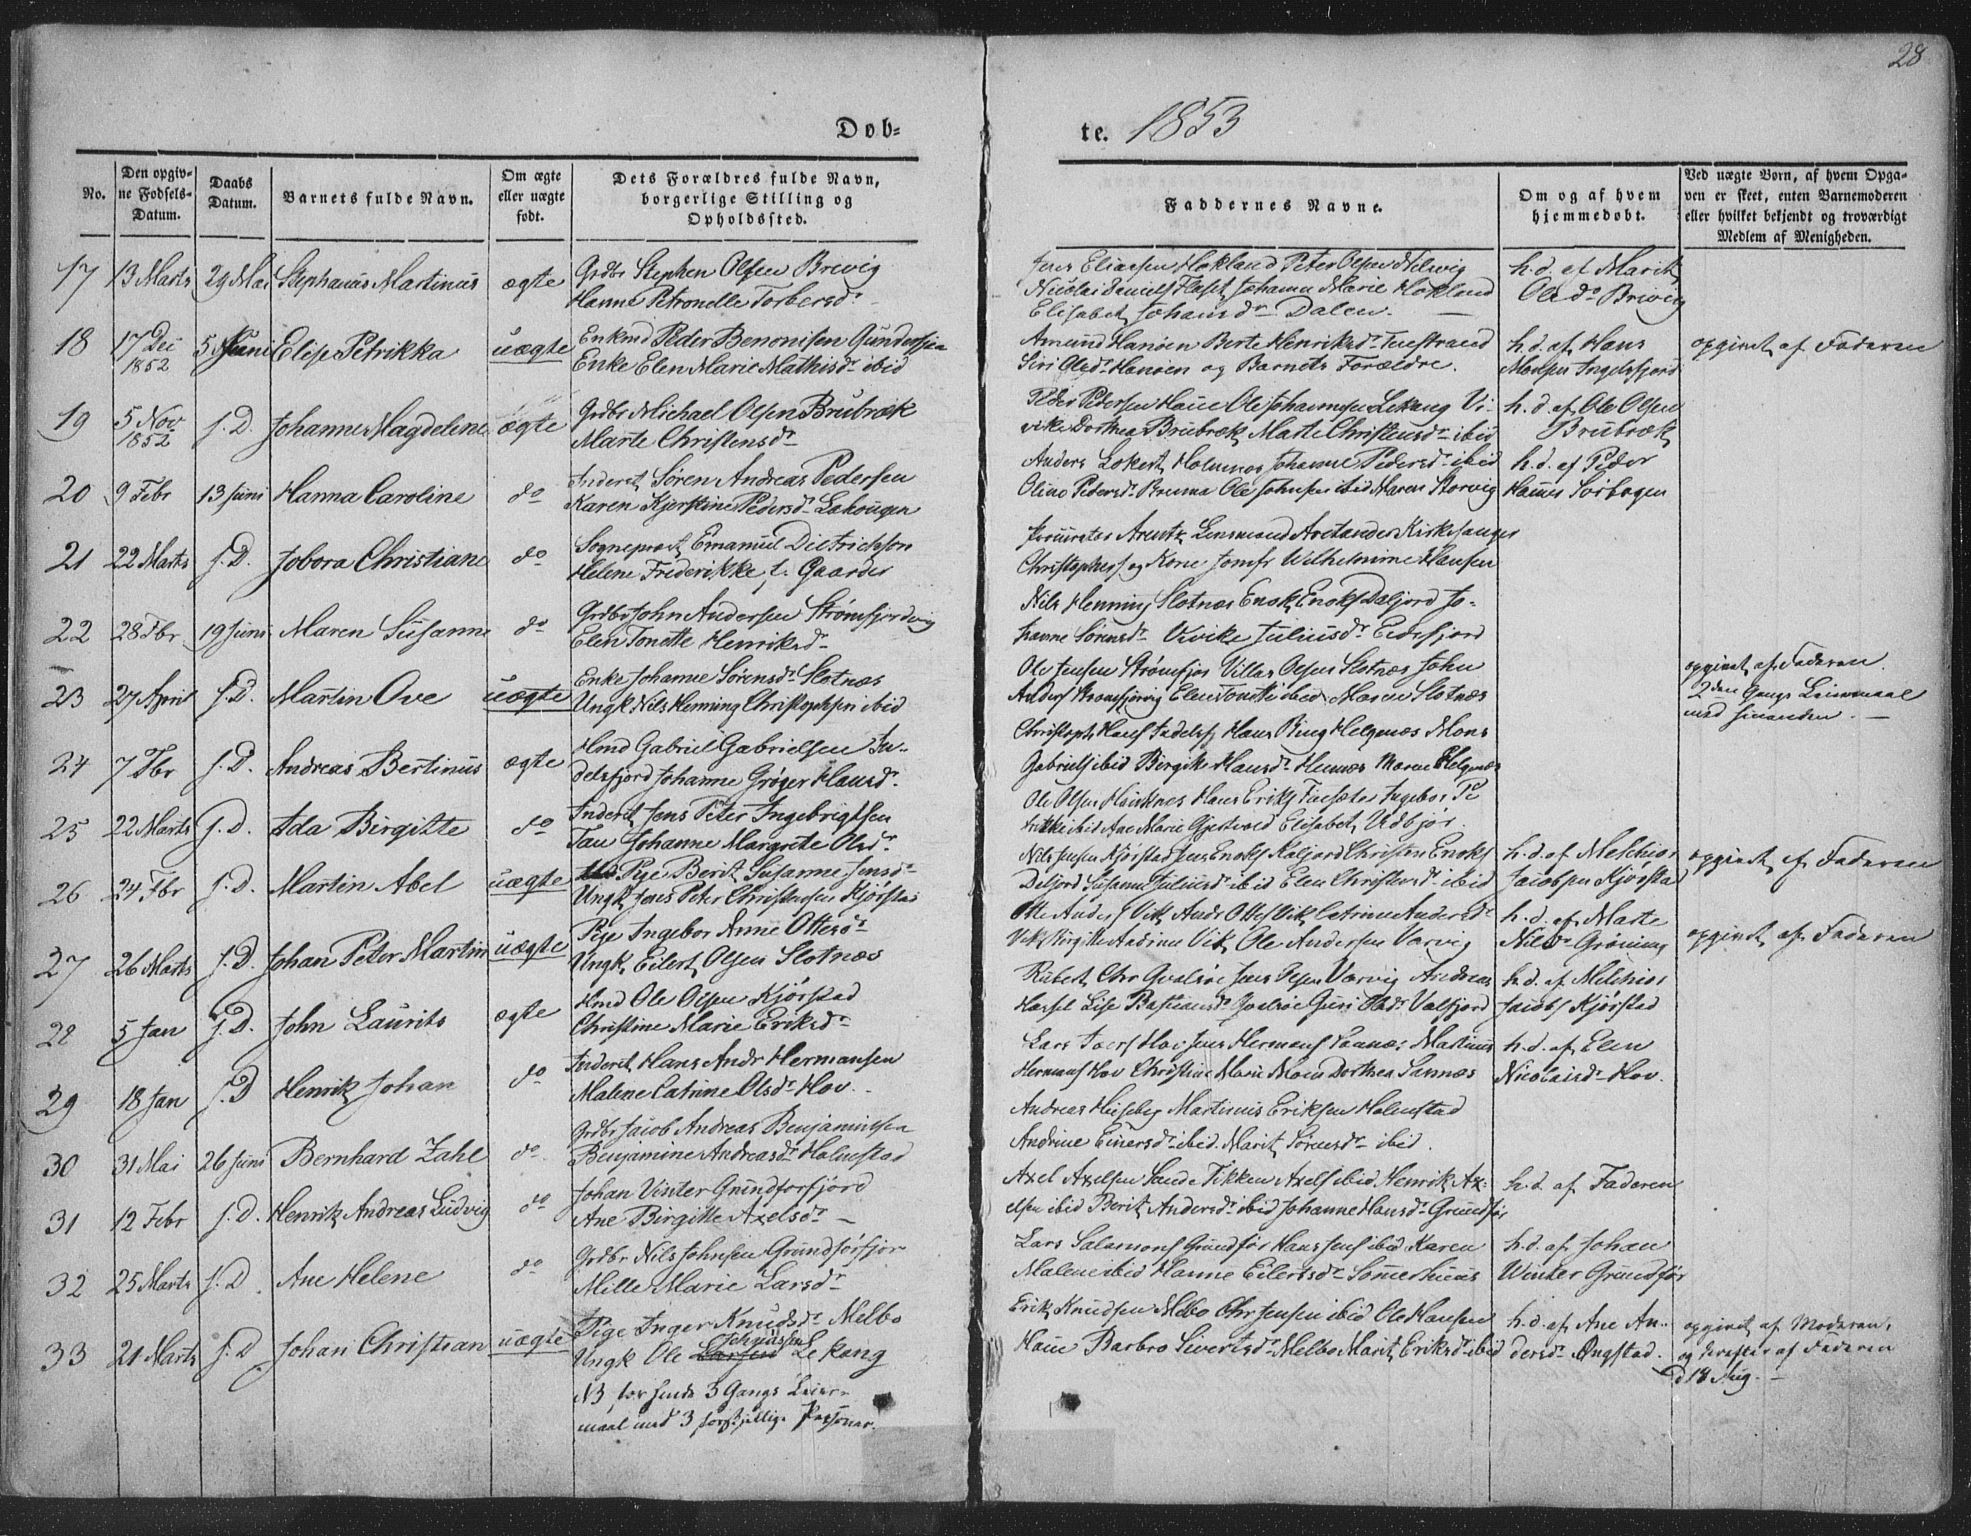 28
Døb=
te. 1853
No.
Den opgiv-
ne Fødsels-
Datum.
Daabs
Datum.
Barnets fulde Navn.
Om ægte
eller uægte
født.
Dets Forældres fulde Navn,
borgerlige Stilling og
Opholdssted.
Faddernes Navne.
Om og af hvem
hjemmedøbt.
Ved uægte Børn, af hvem Opga-
ven er skeet, enten Barnemoderen
eller hvilket bekjendt og troværdigt
Medlem af Menigheden.
17 13 Marts 29 Mai Stephanus Martinus ægte Grdbr Stephen Olsen Brevig
Hanne Petronelle Torbersdr
Jens Eliassen Hokland Peter Olsen
Nicolai Daniels Johanna Marie Hokland
Elisabet Johansdr Dalen.
h. d. af Marit
Olsdr Brevig
18 17 Dec 5 Juni Elise Petrikka uægte Enkmd Peder Benonisen
1852 Enke Elen Marie Mathisdr ibid
Amund Hanøen Berte Henriksdr
Siri Olsdr Hanøen og Barnets Forældre.
h. d. af Hans
Ingelsfjord
opgivet af Faderen
19 5 Nov J. D. Johanne Magdelene ægte Grdbr Michael Olsen Brubræk
1852 Marte Christensdr
Peder Pedersen Haue Ole Johannesen Lekang Vi-
vike Dorthea Brubræk Marte Christensdr ibid
h. d. af Ole Olsen
Brubræk
20 9 Febr 13 Juni Hanna Caroline do Inderst Søren Andreas Pedersen
Karen Kjerstine Pedersdr
Anders Lokert Holmenes Johanne Pedersdr ibid
Oline Pedersdr Ole Johnsen ibid Maren Storvig
h. d. af Peder
21 22 Marts J. D. Jobora Christiane do Sogneprest Emanuel Dietrichson
Helene Frederikke f. Gaarder
Procurator Arentz Lensmand Kirkesanger
Christophers og Kone Jomfr Wilhelmine Hansen
22 28 Fbr 19 Juni Maren Susanne do Grdbr John Andersen Strømfjordvig
Elen Tonette Henriksdr
Nils Henning Slotnæs Enok Enoks Daljord Jo-
hanne Sørensdr Vivike Juliusdr Eidsfjord
23 27 April J. D. Martin Ove uægte Enke Johanne Sørensdr Slotnæs
Ungk Nils Henning Christophersen ibid
Ole Jensen Strømfjor Villas Olsen Slotnæs John
Anders Elen Tonette ibid Maren Slotnæs
opgivet af Faderen.
2den Gangs Leiermaal
med hinanden.
24 7 Fbr J. D. Andreas Bertinus ægte Hmd Gabriel Gabrielsen In-
delsfjord Johanne Grøger Hansdr
Hans Ring Helgenæs Mons
Gabriels ibid Birgitte Hansdr Maren Helgenæs
25 22 Marts J. D. Ida Birgitte do Inderst Jens Peter Ingebrigtsen
Johanne Margrete Olsdr
Ole Olsen Hans Eriks Ingebor Pe
trikke ibid Ane Marie Elisabet
26 24 Fbr J. D. Martin Abel uægte Pige Berit Susanne Jensdr
Ungk Jens Peter Christensen Kjørstad
Nils Jensen Kjørstad Jens Enoks Daljord Christen Enoks
Daljord Susanne Juliusdr ibid Elen Christensdr ibid
h. d. af Melchior
Jacobsen Kjørstad
opgivet af Faderen
27 26 Marts J. D. Johan Peter Martin uægte Pige Ingebor Anne Ottesdr
Ungk Eilert Olsen Slotnæs
Otte Anders Vik Andr Ottes Vik Catrine Andersdr
Vik Birgitte Andrine Vik Ole Andersen Varvig
h. d. af Marte
Nilsdr Grøning
opgivet af Faderen
28 5 Jan J. D. John Laurits ægte Hmd Ole Olsen Kjørstad
Christine Marie Eriksdr
Ribert Chr Jens Varvig Andreas
Lise Bastiansdr Guri Olsdr Valfjord
h. d. af Melchior
Jacobs Kjørstad
29 18 Jan J. D Henrik Johan do Inderst Hans Andr Hermansen
Malene Catrine Olsdr Hov.
Lars Hov Jens Hermans Sannæs Martinus
Hermans Hov Christine Marie Moen Dorthea Sannæs
h. d. af Elen
Nicolaisdr Hov.
30 31 Mai 26 Juni Bernhard Zahl do Grdbr Jacob Andreas Benjaminsen
Benjamine Andreasdr Holmstad
Andreas Huseby Martinus Eriksen Holmstad
Andrine Einersdr ibid. Marit Sørensdr ibid.
31 12 Febr J. D. Henrik Andreas Ludvig do Johan Vinter Grundforfjord
Ane Birgitte Axelsdr
Axel Axelsen Sande Tikken Axels ibid Henrik Ax-
elsen ibid Berit Andersdr ibid Johanne Hansdr Grundfør
h. d. af Faderen
32 25 Marts J. D. Ane Helene do Grdbr Nils Johnsen Grundførfjor
Mille Marie Larsdr
Lars Salamons Grundfør Hans Jens ibid Karen
Malene ibid Hanne Eilertsdr Sommerhuus
h. d. af Johan
Winter Grundfør
33 21 Marts J. D Johan Christian uægte Pige Inger Knudsdr Melbo
Ungk Ole Larsen Lekang
N3 for hende 3 Gangs Leier-
maal med 3 forskjellige Personer.
Erik Knudsen Melbo Chr Jensen ibid Ole Hansen
Haue Barbro Sivertsdr Melbo Marit Eriksdr ibid
h. d. af Ane An-
dersdr Ongstad.
opgivet af Moderen,
og derefter af Faderen
d 18 Aug.